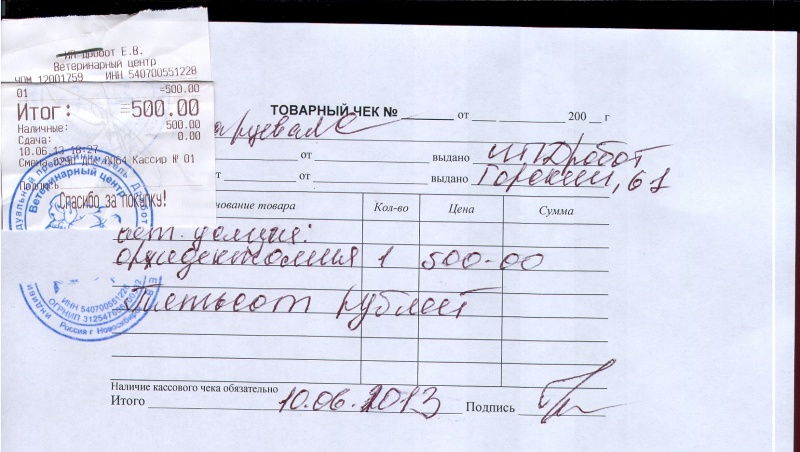 ИП Дробот Е.В.
Ветеринарный центр
ЧПМ 12001759 ИНН 540700551228
01 =500.00
Итог: =500.00
Наличные: 500.00
Сдача: 0.00
10.06.13 18:27
Смена 0290 Кассир № 01
Спасибо за покупку!
ТОВАРНЫЙ ЧЕК № от 200 г
от выдано ИП Дробот
т от выдано Горский, 61
нование товара Кол-во Цена Сумма
вет. услуги:
орхидектомия 1 500-00
Пятьсот рублей
Наличие кассового чека обязательно
Итого 10.06.2013 Подпись
Ветеринарный центр
ИНН 540700551228
Россия г Новосибирск